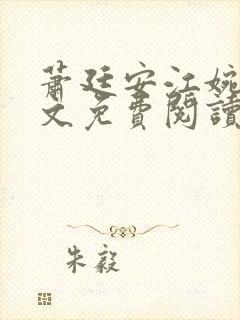 蕭廷安江婉
文免費閱讀
朱毅